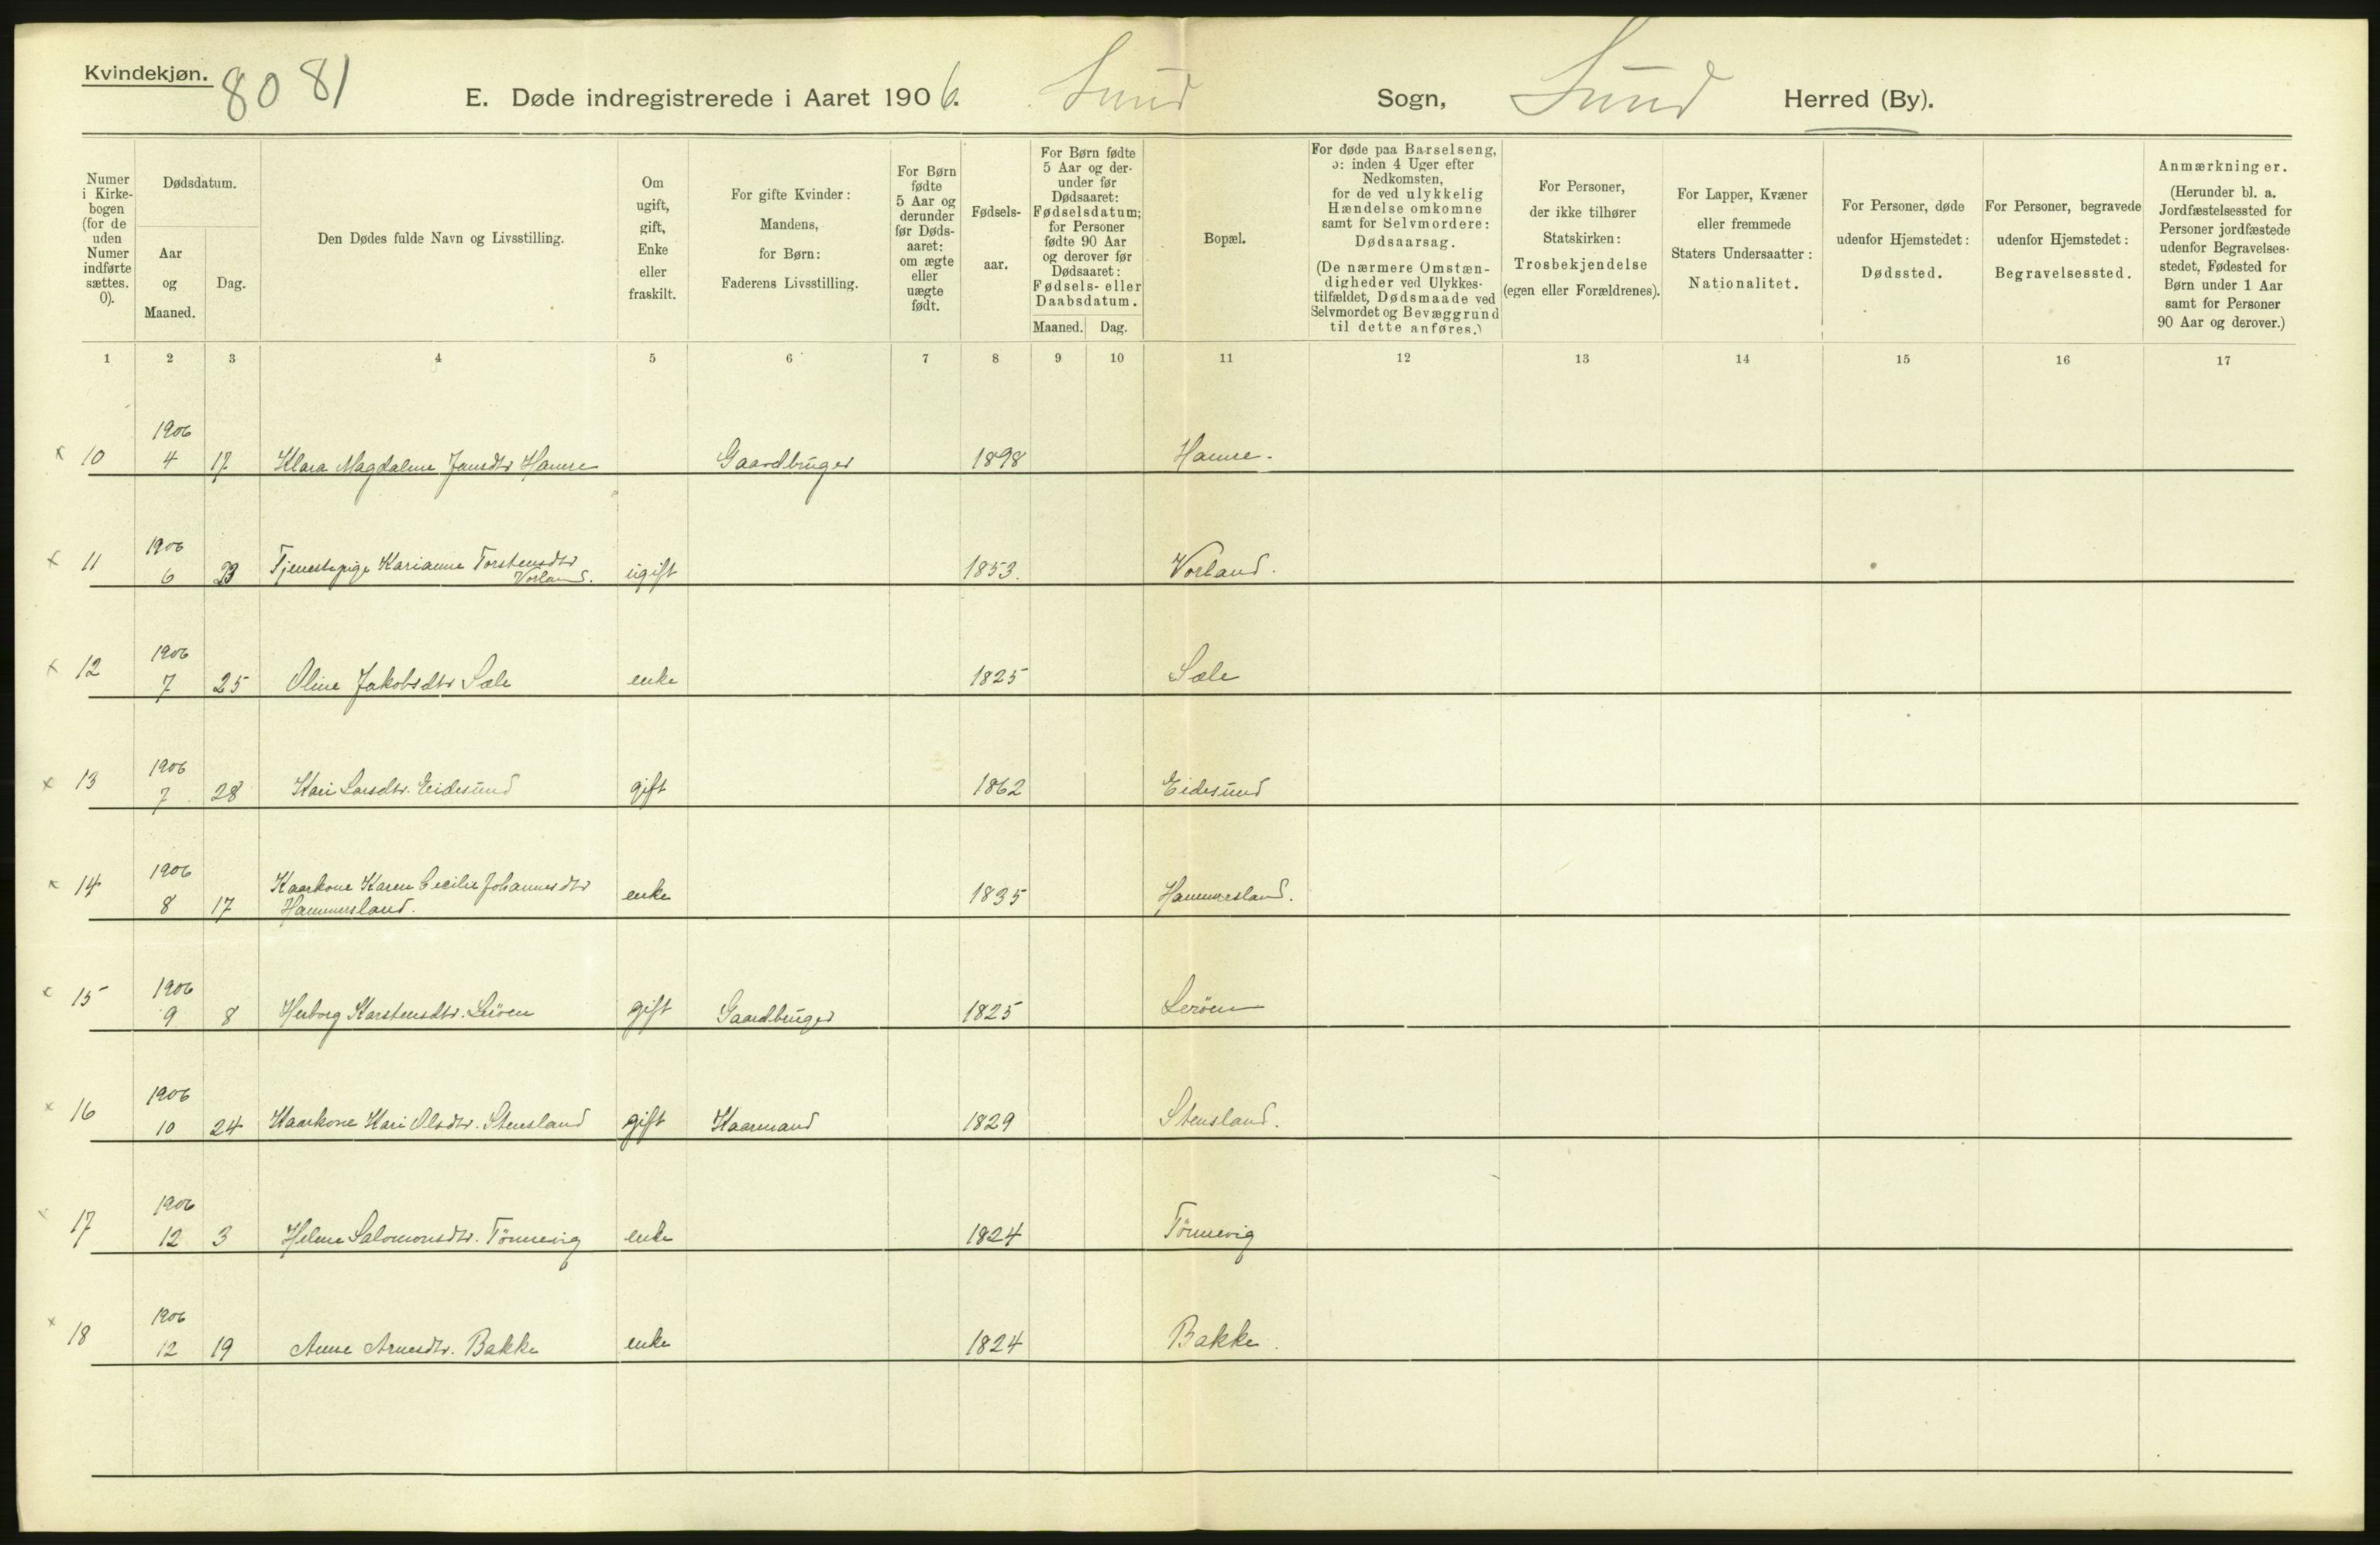 Kvindekjøn.
80 81
E. Døde indregistrerede i Aaret 1906. Sund Sogn, Sund Herred (By).
Numer i Kirke-bogen (for de uden Numer indførte sættes. 0).
Dødsdatum.
Aar og Maaned.
Dag.
Den Dødes fulde Navn og Livsstilling.
Om ugift, gift, Enke eller fraskilt.
For gifte Kvinder: Mandens, for Børn: Faderens Livsstilling.
For Børn fødte 5 Aar og derunder før Døds-aaret: om ægte eller uægte født.
Fødsels-aar.
For Børn fødte 5 Aar og der-under før Dødsaaret: Fødselsdatum; for Personer fødte 90 Aar og derover før Dødsaaret: Fødsels- eller Daabsdatum.
Maaned. Dag.
Bopæl.
For døde paa Barselseng, ɔ: inden 4 Uger efter Nedkomsten, for de ved ulykkelig Hændelse omkomne samt for Selvmordere: Dødsaarsag. (De nærmere Omstæn-digheder ved Ulykkes-tilfældet, Dødsmaade ved Selvmordet og Bevæggrund til dette anføres.)
For Personer, der ikke tilhører Statskirken: Trosbekjendelse (egen eller Forældrenes).
For Lapper, Kvæner eller fremmede Staters Undersaatter: Nationalitet.
For Personer, døde udenfor Hjemstedet: Dødssted.
For Personer, begravede udenfor Hjemstedet: Begravelsessted.
Anmærkninger. (Herunder bl. a. Jordfæstelsessted for Personer jordfæstede udenfor Begravelses-stedet, Fødested for Børn under 1 Aar samt for Personer 90 Aar og derover.)
1 2 3 4 5 6 7 8 9 10 11 12 13 14 15 16 17
1906
x 10 4 17 Klara Magdalene Jansdtr Hamre Gaardbruger 1898 Hamre.
1906
x 11 6 23 Tjenestepige Karianne Torstensdtr Vorland. ugift 1853. Vorland.
1906
x 12 7 25 Oline Jakobsdtr Sæle enke 1825 Sæle
1906
x 13 7 28 Kari Larsdtr. Eidesund gift 1862 Eidesund
1906
x 14 8 17 Kaarkone Karen Cecilie Johannesdtr Hammersland. enke 1835 Hammersland.
1906
x 15 9 8 Herborg Karstensdtr. Leröen gift Gaardbruger 1825 Leröen
1906
x 16 10 24 Kaarkone Kari Olsdtr. Stensland gift Kaarmand 1829 Stensland.
1906
x 17 12 3 Helene Salomonsdtr. Tönnevig enke 1824 Tönnevig
1906
x 18 12 19 Anne Arnesdtr. Bakke enke 1824 Bakke.